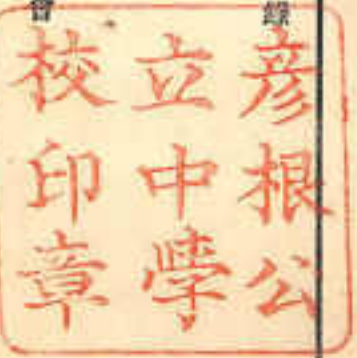 彦根公
立中學
校印章
錄